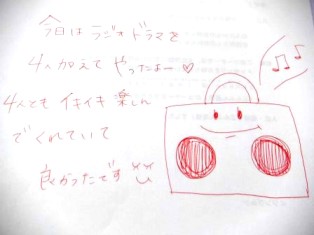 今日はラジオドラマを
4人加えてやったよー♡
4人ともイキイキ楽しん
でくれていて
良かったです